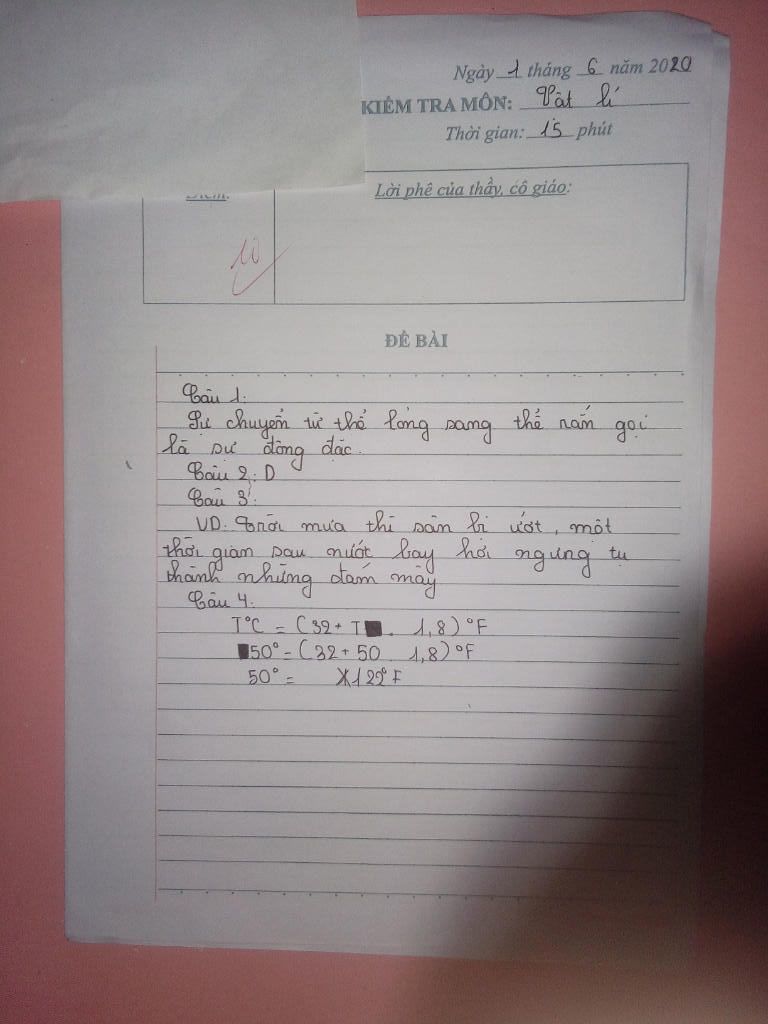 Ngày 1 tháng 6 năm 2020
KIỂM TRA MÔN: Vật lí
Thời gian: 15 phút
Điểm:
Lời phê của thầy, cô giáo:
10
ĐỀ BÀI
Câu 1:
Sự chuyển từ thể lỏng sang thể rắn gọi
là sự đông đặc.
Câu 2: D
Câu 3:
VD: Trời mưa thì sân bị ướt, một
thời gian sau nước bay hơi ngưng tụ
thành những đám mây
Câu 4:
T°C = (32 + T . 1,8) °F
50° = (32 + 50 1,8) °F
50° = 122°F